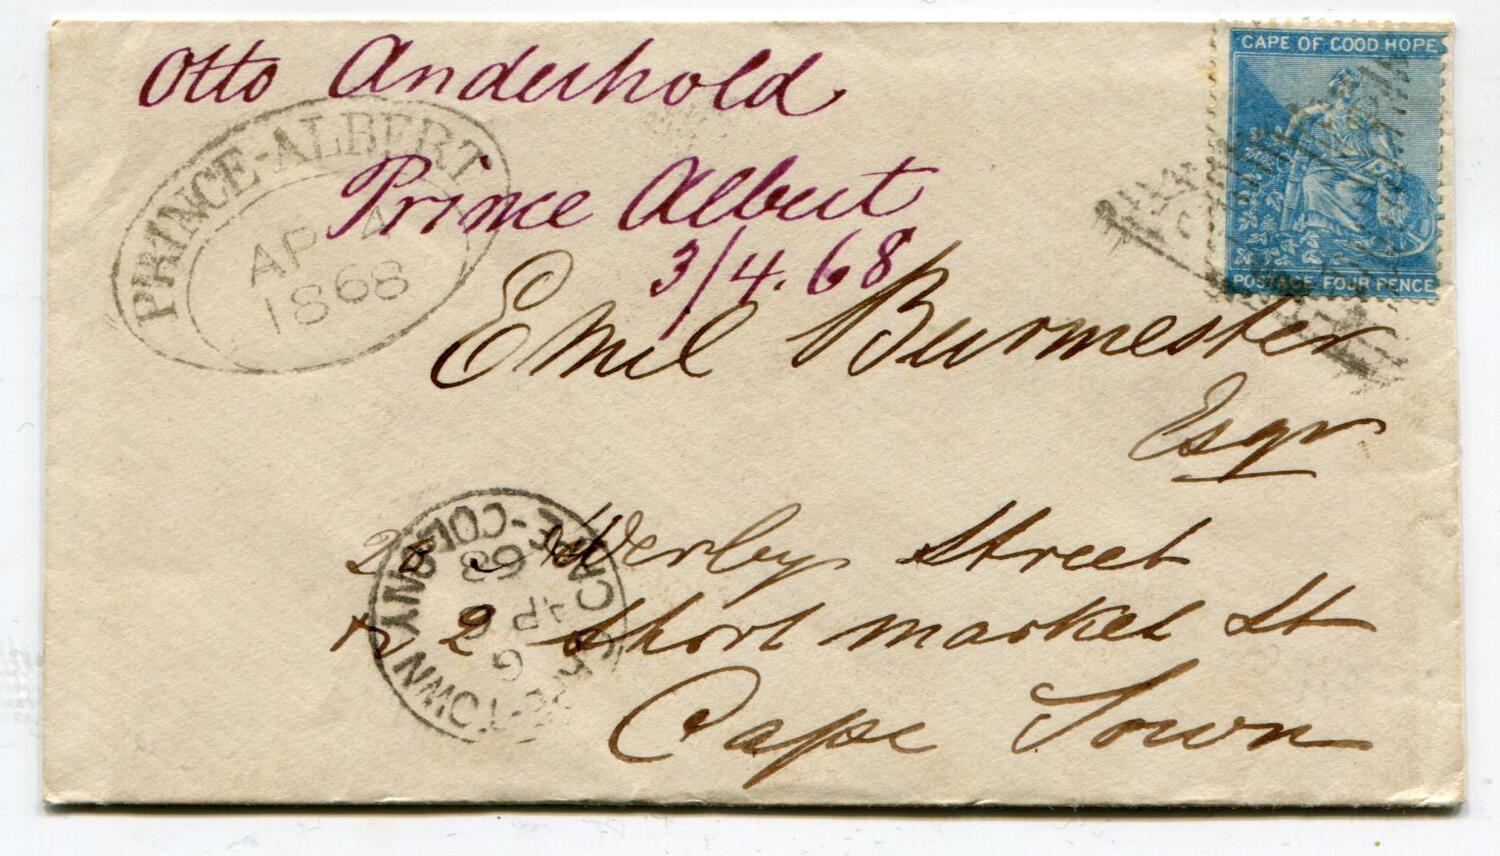 Otto Anderhold
CAPE OF GOOD HOPE
PRINCE-ALBERT
AP 4
1868
Prince Albert
3/4.68
POSTAGE FOUR PENCE
Emil Burmester
Esqr
Street
CAPE-TOWN CAPE-COLONY
G
AP 6
68
2 Short market St
Cape Town